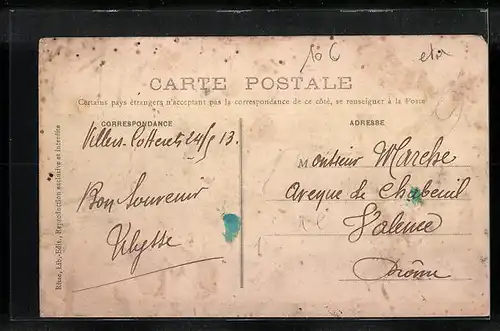 10 C
CARTE POSTALE
Certains pays étrangers n'acceptant pas la correspondance de ce côté, se renseigner à la Poste
CORRESPONDANCE
Villers-Cotterets 24/5 13.
Bon Souvenir
Ulysse
ADRESSE
Monsieur Marche
Avenue de Chabeuil
Valence
Drôme
Risse, Lib.-Edit., Reproduction exclusive et interdite